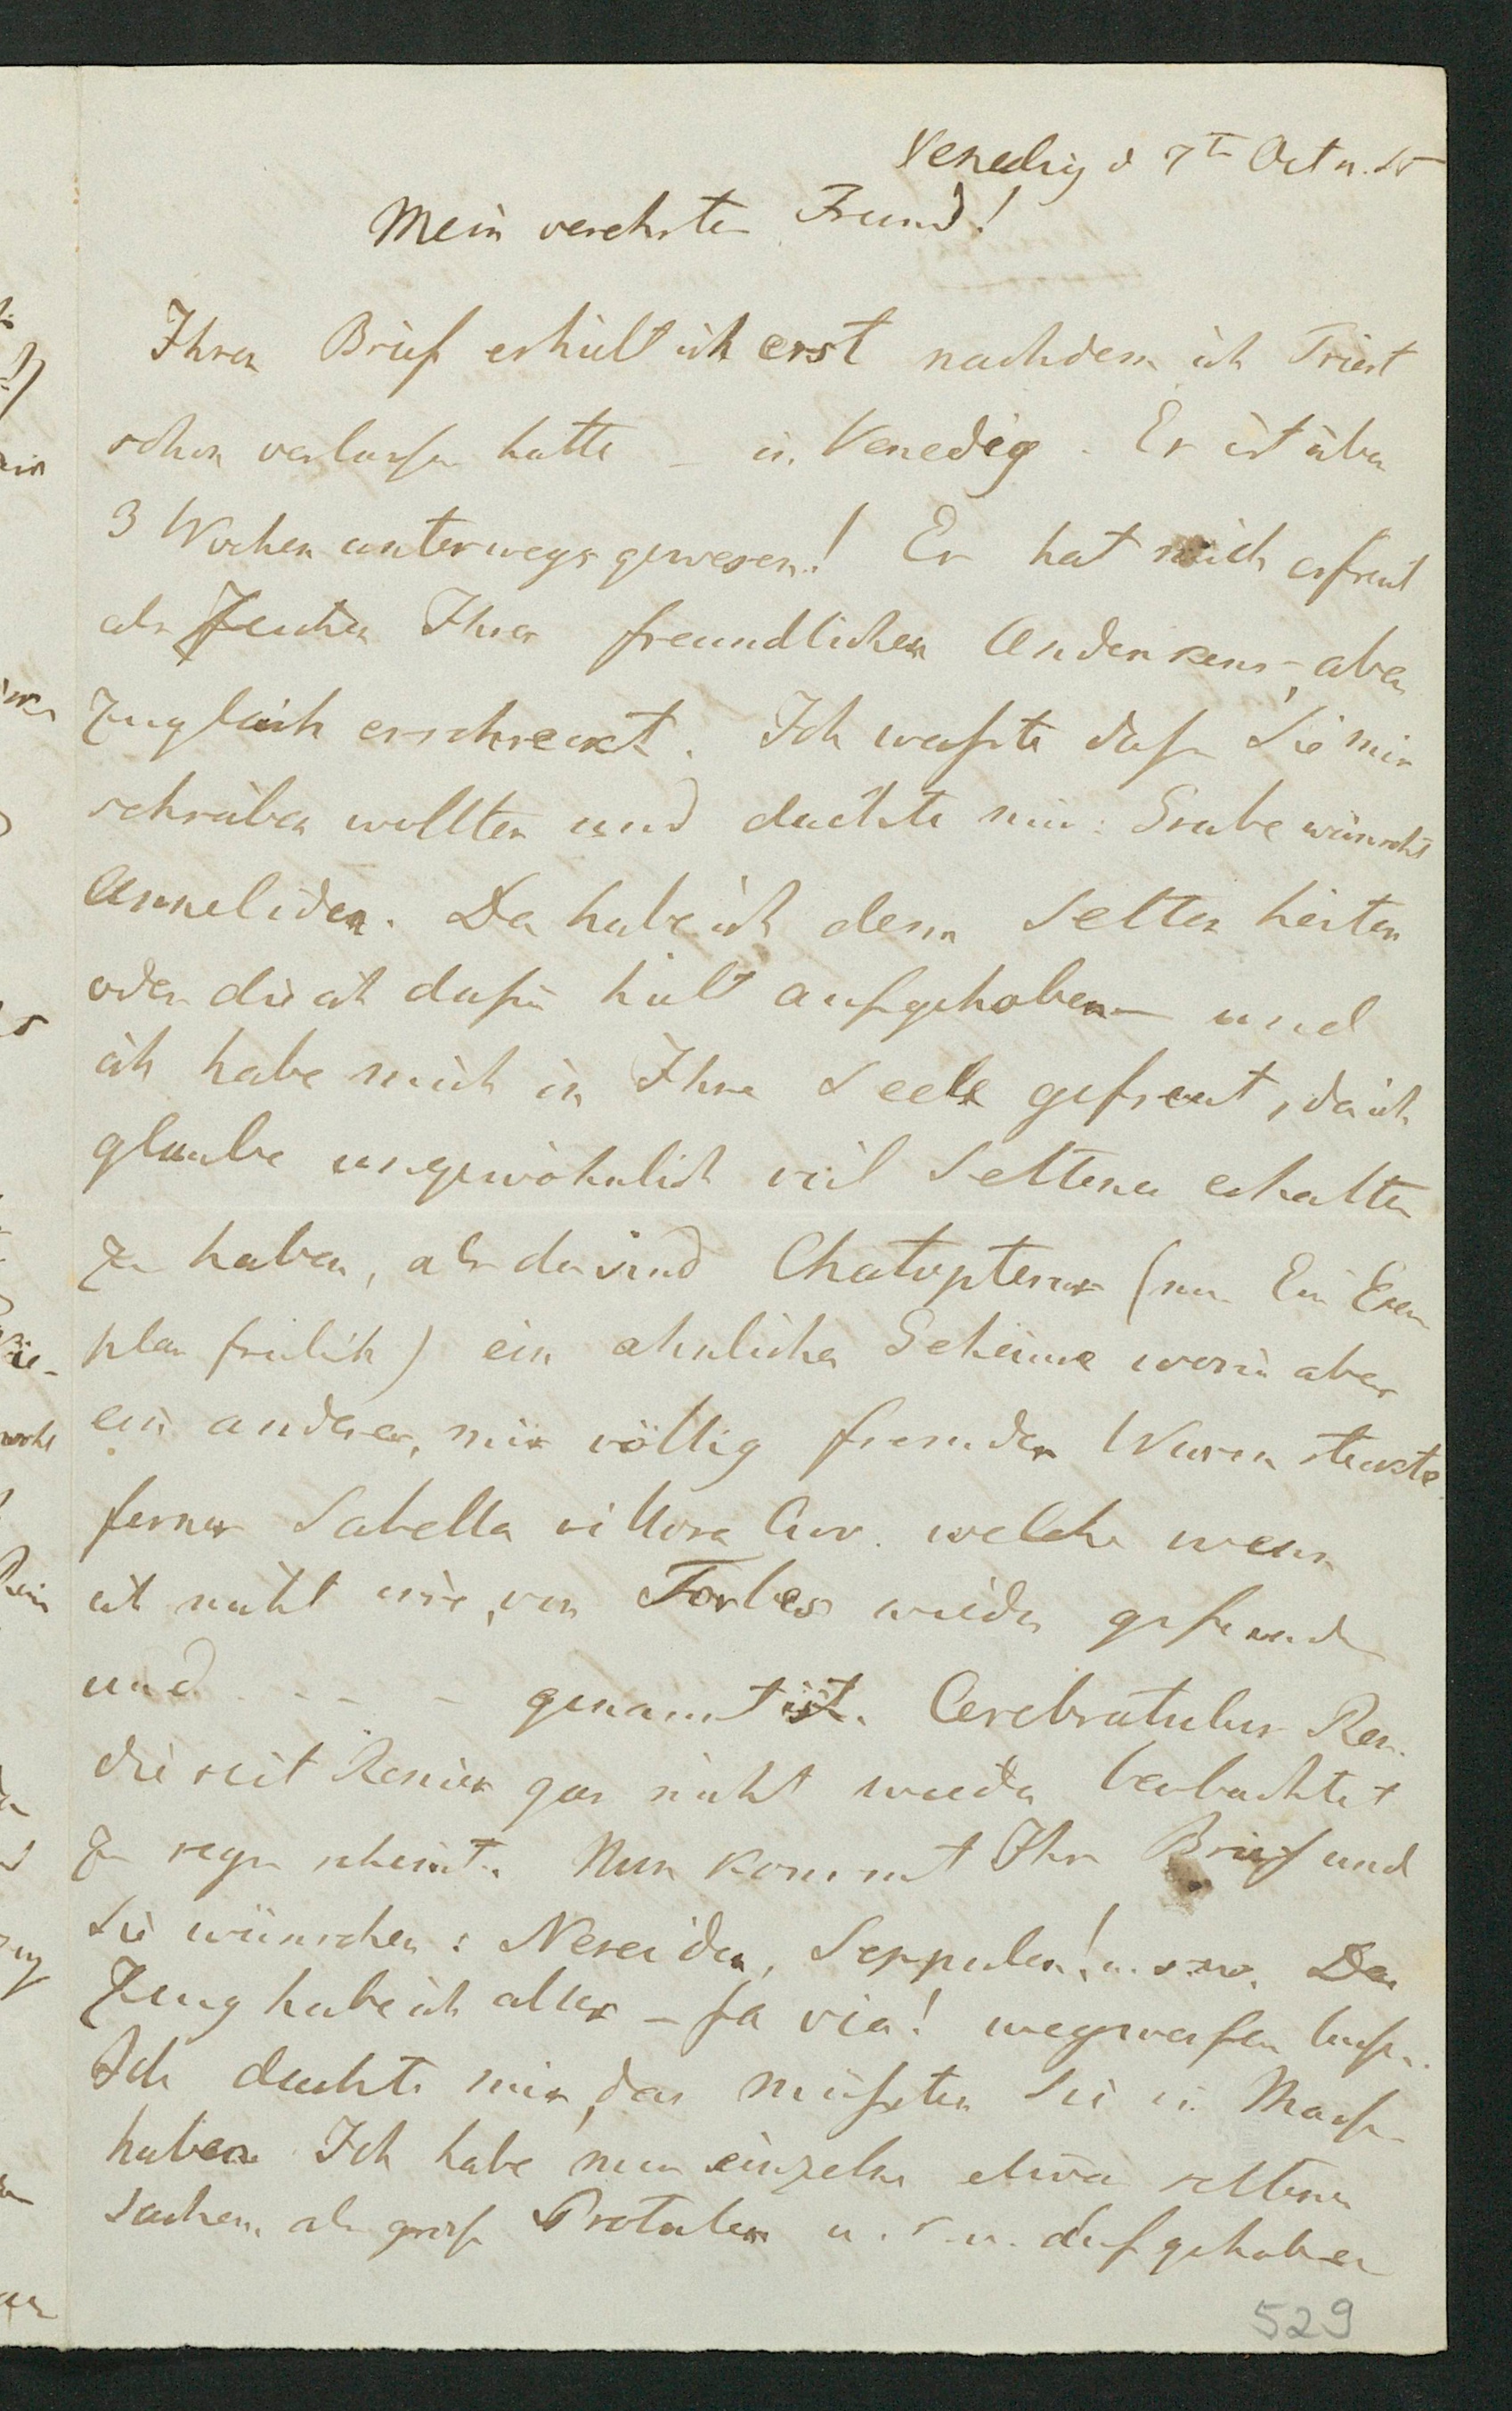 Venedig d 7t Octr.
Mein verehrter Freund!
Ihren Brief erhielt ich erst nachdem ich Triest
schon verlassen hatte – in Venedig. Er ist über
3 Wochen unterwegs gewesen! Er hat mich erfreut
als Zeichen Ihres freundlichen Andenkens, – aber
zugleich erschreckt. Ich wußte daß Sie mir
schreiben wollten und dachte mir: Grube wünscht
Anneliden. Da habe ich denn Seltenheiten
oder die ich dafür hielt aufgehoben – und
ich habe mich in Ihre Seele gefreut, da ich
glaube ungewöhnlich viel Seltenes erhalten
zu haben, als da sind Chatopterus (nur Ein Exem
plar freilich) ein ähnliches Gehäuse worin aber
ein anderer, mir völlig fremder Wurm steckte
ferner Sabella villosa Cuv. welche wenn
ich nicht irre, von Forbes wieder gefunden
und - - - - genannt ist. Cerebratulus Ren.
die seit Renier gar nicht wieder beobachtet
zu seyn scheint. Nun kommt Ihr Brief und
Sie wünschen: Nereiden, Serpulen! u. s. w. Das
Zeug habe ich alles – fa via! wegwerfen lassen.
Ich dachte mir, das müßten Sie in Masse
haben. Ich habe nur einzelne etwa seltene
Sachen, als große Protulen u. s. w. aufgehoben
529